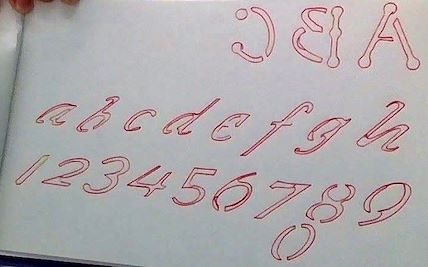 A B C
a b c d e f g h
1 2 3 4 5 6 7 8 9
0